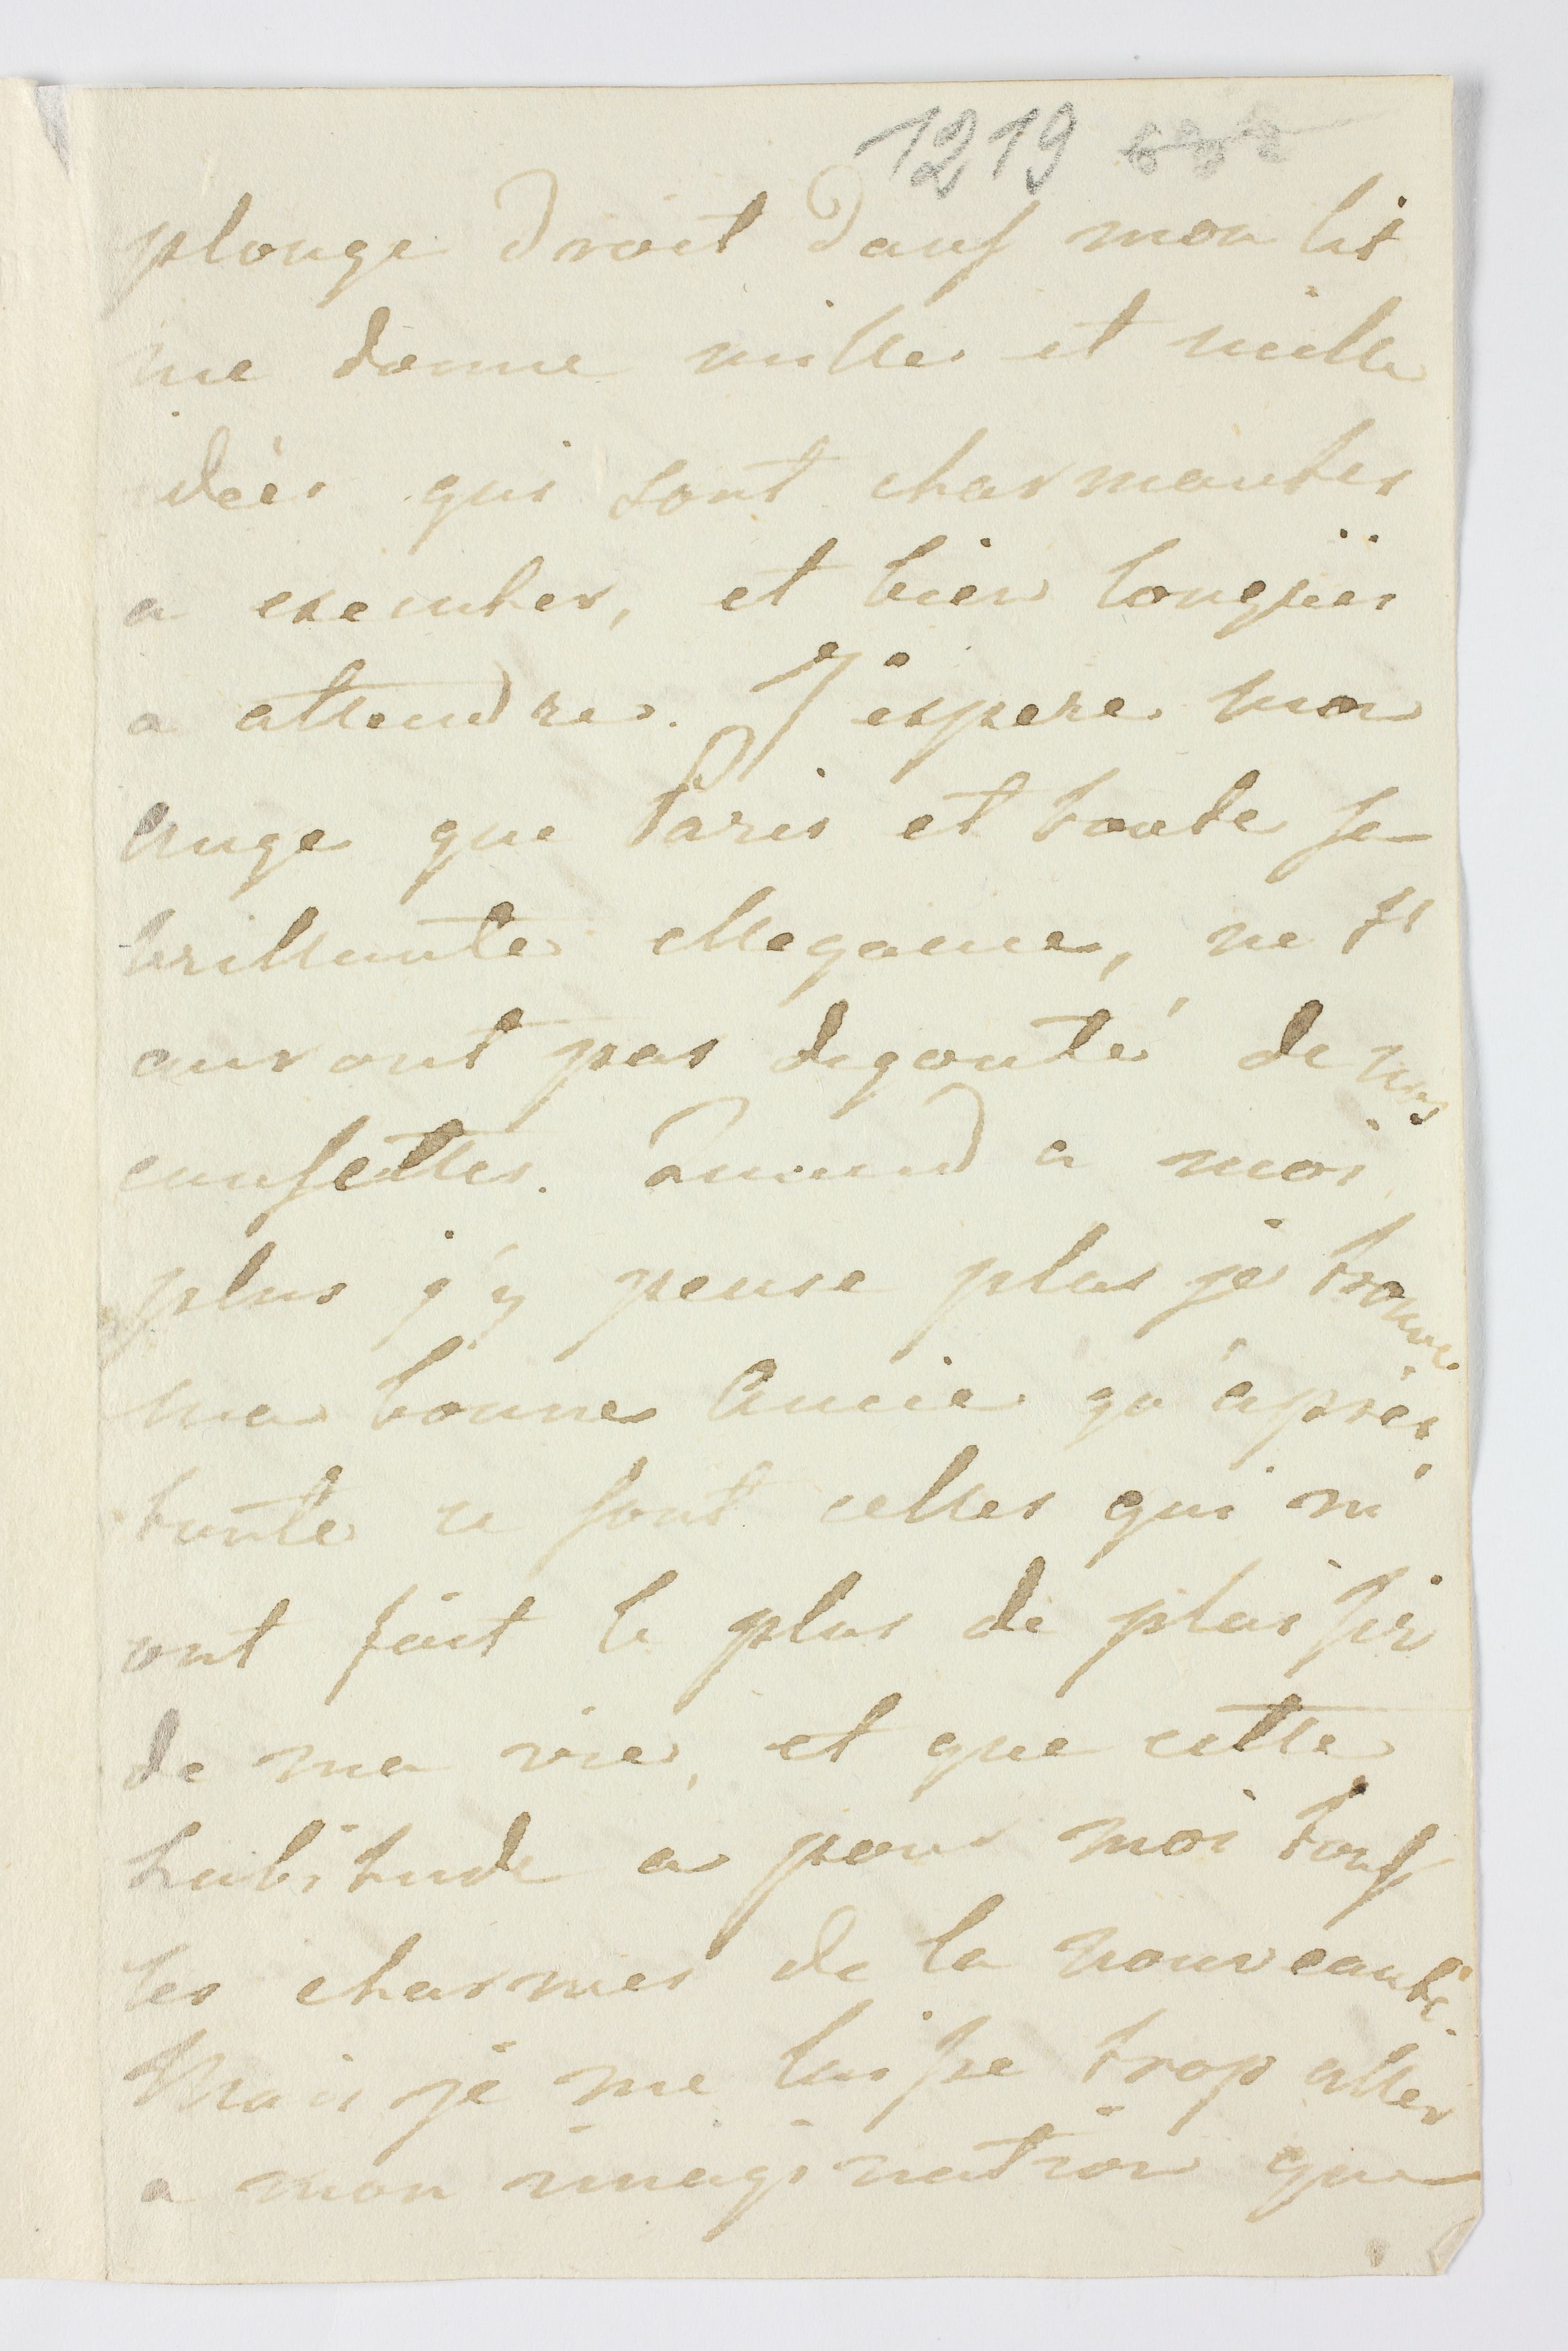 1219
plonge droit dans mon lit
me donne mille et mille
idées qui sont charmantes
a executer, et bien longües
a attendre. J'espere mon
Ange que Paris et toute sa
brillante ellegance, ne t'
auront pas degouté de nos
causettes. Quand a moi
plus j'y pense plus je trouve
ma bonne Amie qu'après
toute ce sont celles qui m'
ont fait le plus de plaisir
de ma vie, et que cette
habitude a pour moi tous
les charmes de la nouveauté.
Mais je me laisse trop aller
a mon imagination que